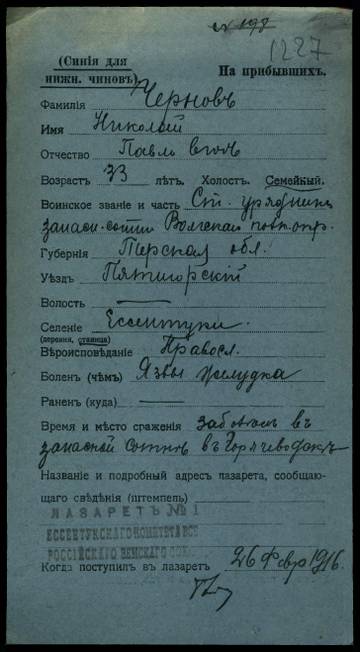 № 198
1227
(Синія для нижн. чиновъ)
На прибывшихъ.
Фамилія Черновъ
Имя Николай
Отчество Павловъ
Возрастъ 33 лѣтъ. Холост. Семейный.
Воинское званіе и часть Ст. урядникъ
запасн. сотни Волгскаго полк.
Губернія Терская обл.
Уѣздъ Пятигорскій
Волость —
Селеніе Ессентуки.
(деревня, станица)
Вѣроисповѣданіе Правосл.
Боленъ (чѣмъ) Язвы желудка
Раненъ (куда) —
Время и мѣсто сраженія заболѣлъ въ
запасной сотнѣ въ Горячеводск
Названіе и подробный адресъ лазарета, сообщаю-
щаго свѣдѣнія (штемпель)
ЛАЗАРЕТЪ № 1
ЕССЕНТУКСКАГО КОМИТЕТА ВСЕ
РОССІЙСКАГО ЗЕМСКАГО СОЮ
Когда поступилъ въ лазаретъ 26 Февр 1916.